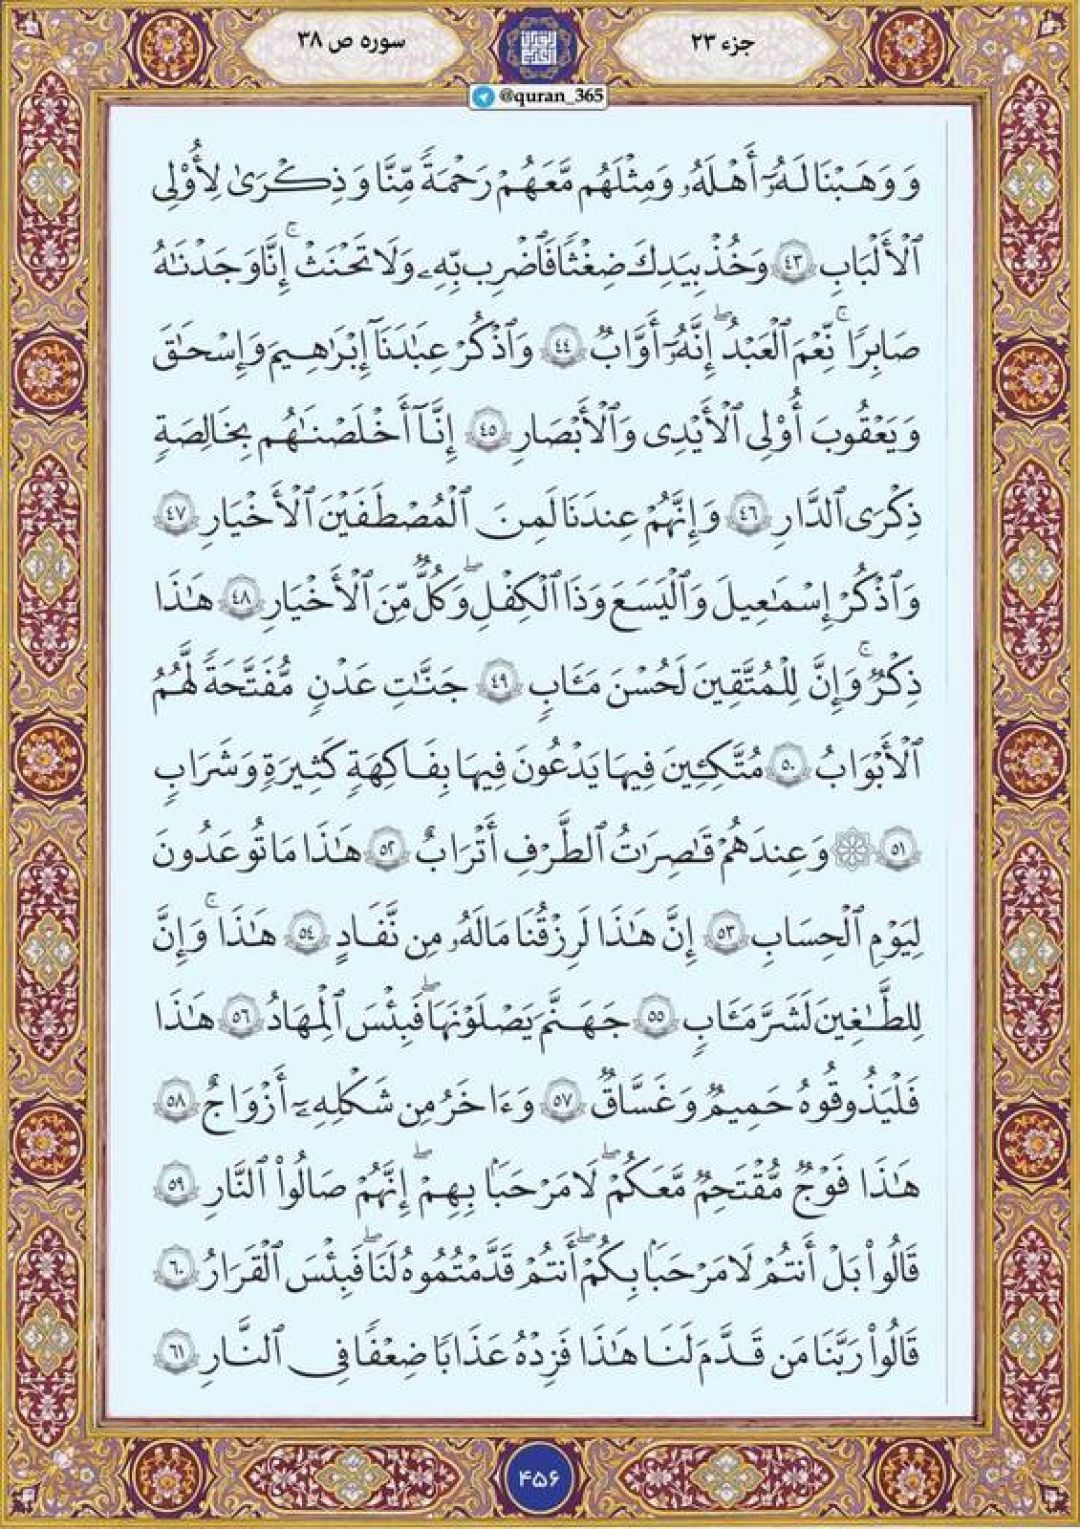 جزء ۲۳
سوره ص ۳۸
@quran_365
وَوَهَبْنَا لَهُۥٓ أَهْلَهُۥ وَمِثْلَهُم مَّعَهُمْ رَحْمَةً مِّنَّا وَذِكْرَىٰ لِأُو۟لِى
ٱلْأَلْبَـٰبِ ٤٣ وَخُذْ بِيَدِكَ ضِغْثًا فَٱضْرِب بِّهِۦ وَلَا تَحْنَثْ ۚ إِنَّا وَجَدْنَـٰهُ
صَابِرًا ۚ نِّعْمَ ٱلْعَبْدُ ۖ إِنَّهُۥٓ أَوَّابٌ ٤٤ وَٱذْكُرْ عِبَـٰدَنَآ إِبْرَٰهِيمَ وَإِسْحَـٰقَ
وَيَعْقُوبَ أُو۟لِى ٱلْأَيْدِى وَٱلْأَبْصَـٰرِ ٤٥ إِنَّآ أَخْلَصْنَـٰهُم بِخَالِصَةٍ
ذِكْرَى ٱلدَّارِ ٤٦ وَإِنَّهُمْ عِندَنَا لَمِنَ ٱلْمُصْطَفَيْنَ ٱلْأَخْيَارِ ٤٧
وَٱذْكُرْ إِسْمَـٰعِيلَ وَٱلْيَسَعَ وَذَا ٱلْكِفْلِ ۖ وَكُلٌّ مِّنَ ٱلْأَخْيَارِ ٤٨ هَـٰذَا
ذِكْرٌ ۚ وَإِنَّ لِلْمُتَّقِينَ لَحُسْنَ مَـَٔابٍ ٤٩ جَنَّـٰتِ عَدْنٍ مُّفَتَّحَةً لَّهُمُ
ٱلْأَبْوَٰبُ ٥٠ مُتَّكِـِٔينَ فِيهَا يَدْعُونَ فِيهَا بِفَـٰكِهَةٍ كَثِيرَةٍ وَشَرَابٍ
٥١ ۞ وَعِندَهُمْ قَـٰصِرَٰتُ ٱلطَّرْفِ أَتْرَابٌ ٥٢ هَـٰذَا مَا تُوعَدُونَ
لِيَوْمِ ٱلْحِسَابِ ٥٣ إِنَّ هَـٰذَا لَرِزْقُنَا مَا لَهُۥ مِن نَّفَادٍ ٥٤ هَـٰذَا ۚ وَإِنَّ
لِلطَّـٰغِينَ لَشَرَّ مَـَٔابٍ ٥٥ جَهَنَّمَ يَصْلَوْنَهَا ۖ فَبِئْسَ ٱلْمِهَادُ ٥٦ هَـٰذَا
فَلْيَذُوقُوهُ حَمِيمٌ وَغَسَّاقٌ ٥٧ وَءَاخَرُ مِن شَكْلِهِۦٓ أَزْوَٰجٌ ٥٨
هَـٰذَا فَوْجٌ مُّقْتَحِمٌ مَّعَكُمْ ۖ لَا مَرْحَبًۢا بِهِمْ ۖ إِنَّهُمْ صَالُوا۟ ٱلنَّارِ ٥٩
قَالُوا۟ بَلْ أَنتُمْ لَا مَرْحَبًۢا بِكُمْ ۖ أَنتُمْ قَدَّمْتُمُوهُ لَنَا ۖ فَبِئْسَ ٱلْقَرَارُ ٦٠
قَالُوا۟ رَبَّنَا مَن قَدَّمَ لَنَا هَـٰذَا فَزِدْهُ عَذَابًا ضِعْفًا فِى ٱلنَّارِ ٦١
۴۵۶